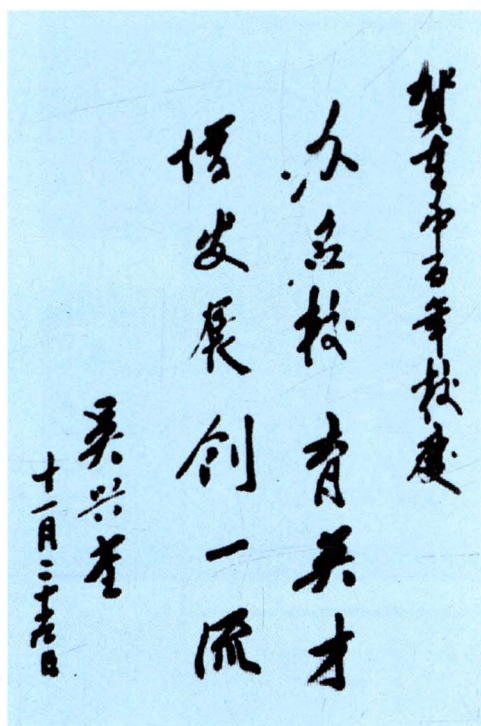 贺东中百年校庆
办名校 育英才
偕发展 创一流
吴兴奎
十一月二十六日